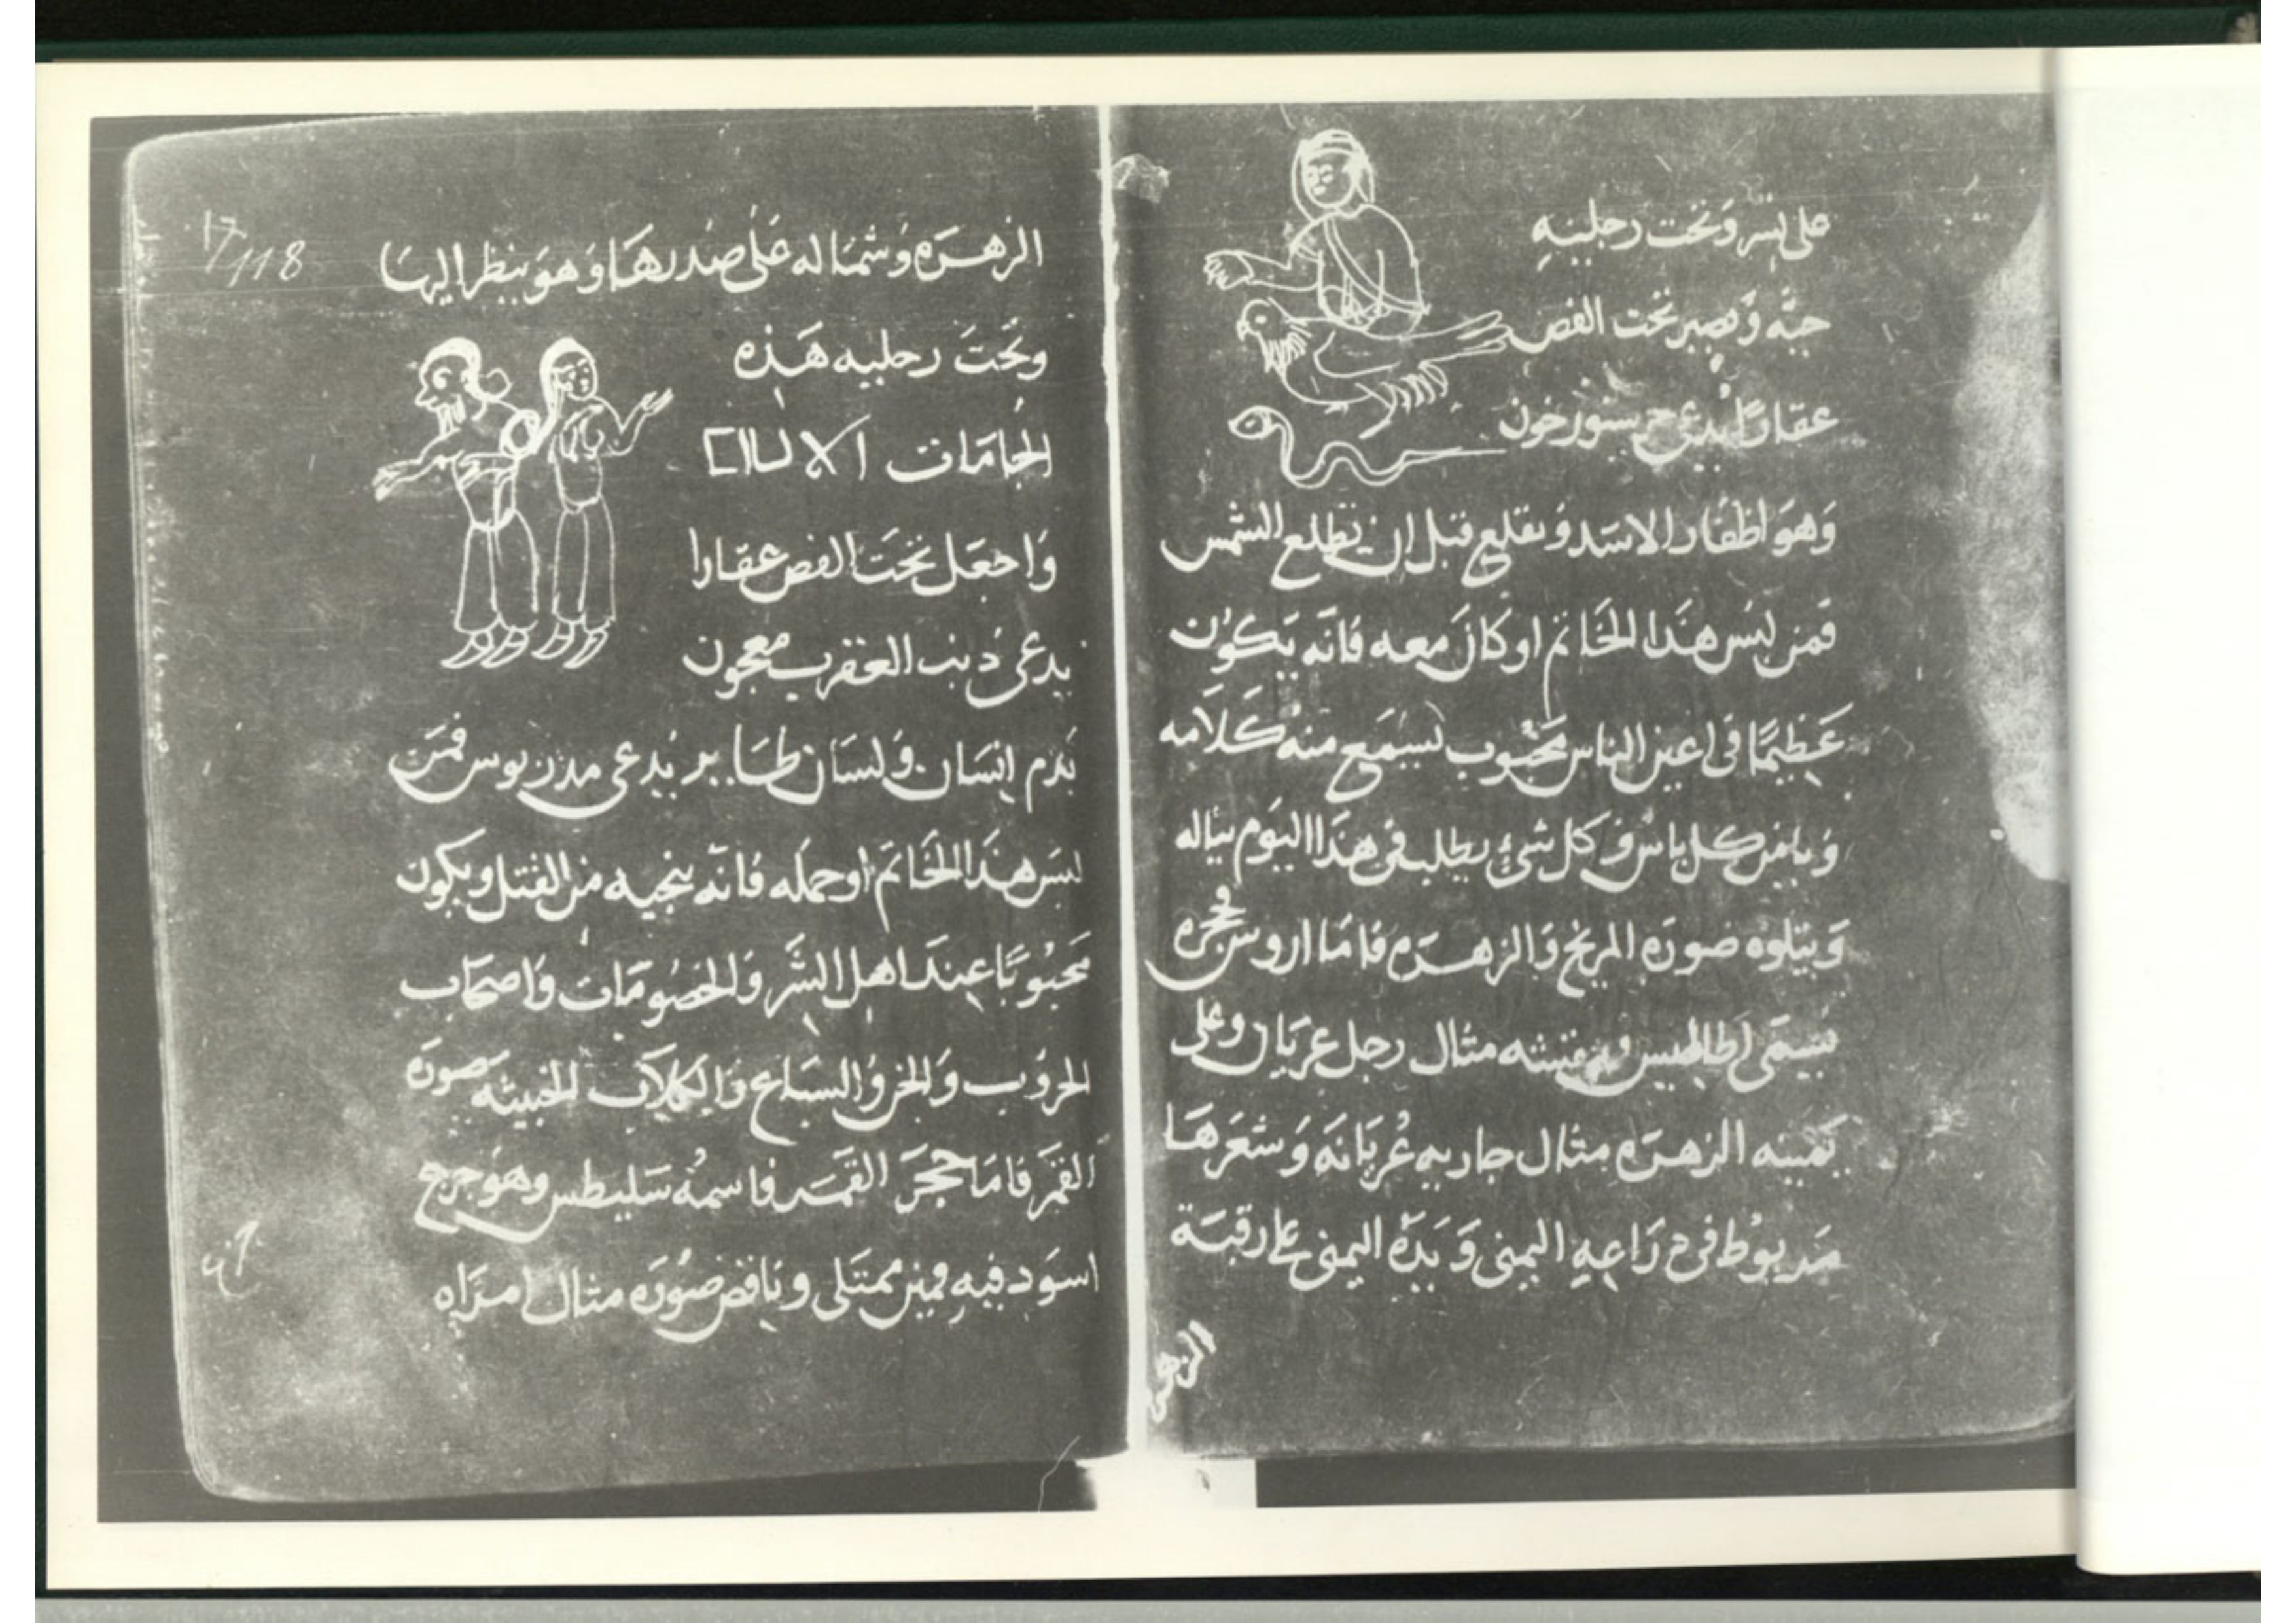 على نسر وَتحت رجليهِ
حيّه وَيصير تحت الفص
عقارًا يدعى
وَهوَ اظفار الاسَد وَيقلع قبل ان تطلع الشمس
فمن لبَس هَذا الخَاتم او كانَ معه فانّه يَكوُن
عَظيمًا فى اعين الناس محَبوب ليسمَع منه كَلامه
وَيامن كل باس وَكل شئ يطلب فى هذا اليوَم يناله
وَيتلوه صورَه المريخ وَالزهَره فامَا اروس فحجره
يسَمَى مثال رجل عريَان وعلى
يَمينه الزهرَه مثال جاريه عُريَانَه وَشعَرهَا
مَربوُط فى ذرَاعهِ اليمنى وَيَده اليمنى على رقبَة
الزهره
17/118
الزهَره وَشمَاله عَلى صَدرهَا وَهوَ ينظر اليهَا
وتحَتَ رجليه هَذه
الجَامَات
وَاجعَل تحَتَ الفص عقارا
يدعى ذنب العقرب معجون
بَدم انسَان وَلسَان طَاير يُدعى فمَن
لبسَ هذَا الخَاتمَ او حمله فانّه ينجيه من القتل ويكون
محَبُوبًا عِندَ اهل الشَر وَالخصُومَات وَاصحَاب
الحروُب وَالسبَاع وَالكلاَب الخبيثه صورَه
القمَر فامَا حجَرَ القمَر فاسمُه سَليطس وهوَ جزع
اسوَد فيهِ ممتَلى وناقص صُورَه مثال امرَاه